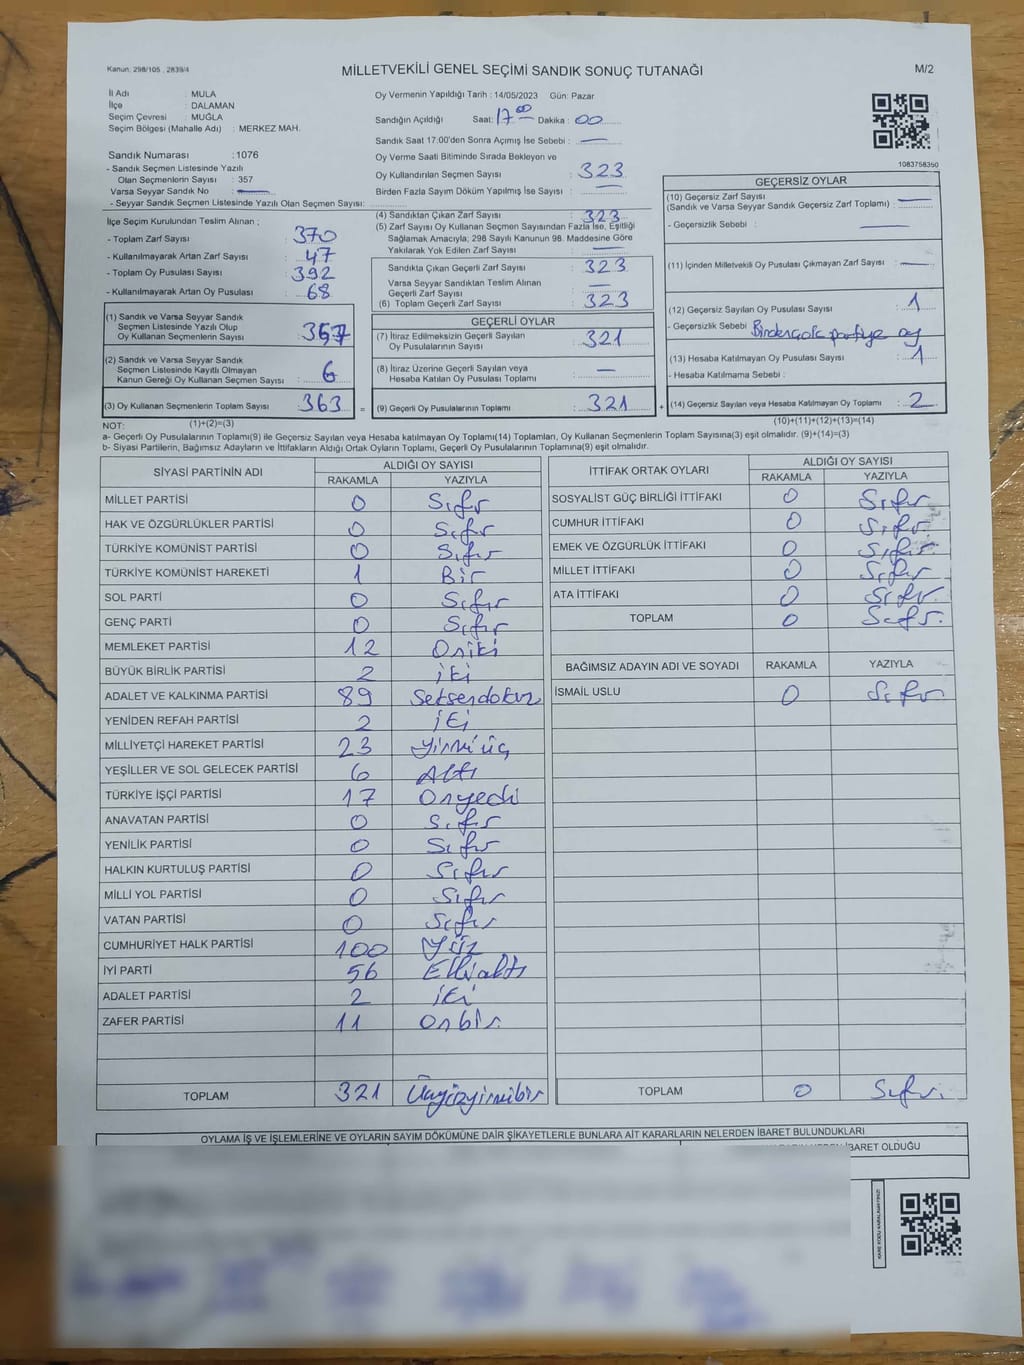 Kanun: 298/105 , 2839/4
MİLLETVEKİLİ GENEL SEÇİMİ SANDIK SONUÇ TUTANAĞI
M/2
İl Adı : MULA
İlçe : DALAMAN
Seçim Çevresi : MUĞLA
Seçim Bölgesi (Mahalle Adı) : MERKEZ MAH.
Sandık Numarası : 1076
- Sandık Seçmen Listesinde Yazılı
Olan Seçmenlerin Sayısı : 357
Varsa Seyyar Sandık No : —
- Seyyar Sandık Seçmen Listesinde Yazılı Olan Seçmen Sayısı:
Oy Vermenin Yapıldığı Tarih : 14/05/2023 Gün: Pazar
Sandığın Açıldığı Saat: 17 00 Dakika : 00
Sandık Saat 17:00'den Sonra Açımış İse Sebebi : —
Oy Verme Saati Bitiminde Sırada Bekleyen ve
Oy Kullandırılan Seçmen Sayısı : 323
Birden Fazla Sayım Döküm Yapılmış İse Sayısı : —
1083758350
İlçe Seçim Kurulundan Teslim Alınan ;
- Toplam Zarf Sayısı : 370
- Kullanılmayarak Artan Zarf Sayısı : 47
- Toplam Oy Pusulası Sayısı : 392
- Kullanılmayarak Artan Oy Pusulası : 68
(1) Sandık ve Varsa Seyyar Sandık
Seçmen Listesinde Yazılı Olup
Oy Kullanan Seçmenlerin Sayısı : 357
(2) Sandık ve Varsa Seyyar Sandık
Seçmen Listesinde Kayıtlı Olmayan
Kanun Gereği Oy Kullanan Seçmen Sayısı : 6
(3) Oy Kullanan Seçmenlerin Toplam Sayısı : 363 =
(4) Sandıktan Çıkan Zarf Sayısı : 323
(5) Zarf Sayısı Oy Kullanan Seçmen Sayısından Fazla İse, Eşitliği
Sağlamak Amacıyla; 298 Sayılı Kanunun 98. Maddesine Göre
Yakılarak Yok Edilen Zarf Sayısı : —
Sandıkta Çıkan Geçerli Zarf Sayısı : 323
Varsa Seyyar Sandıktan Teslim Alınan
Geçerli Zarf Sayısı : —
(6) Toplam Geçerli Zarf Sayısı : 323
GEÇERLİ OYLAR
(7) İtiraz Edilmeksizin Geçerli Sayılan
Oy Pusulalarının Sayısı : 321
(8) İtiraz Üzerine Geçerli Sayılan veya
Hesaba Katılan Oy Pusulası Toplamı : —
(9) Geçerli Oy Pusulalarının Toplamı : 321 +
GEÇERSİZ OYLAR
(10) Geçersiz Zarf Sayısı : —
(Sandık ve Varsa Seyyar Sandık Geçersiz Zarf Toplamı)
- Geçersizlik Sebebi : —
(11) İçinden Milletvekili Oy Pusulası Çıkmayan Zarf Sayısı : —
(12) Geçersiz Sayılan Oy Pusulası Sayısı : 1
- Geçersizlik Sebebi partiye oy
(13) Hesaba Katılmayan Oy Pusulası Sayısı : 1
- Hesaba Katılmama Sebebi :
(14) Geçersiz Sayılan veya Hesaba Katılmayan Oy Toplamı : 2
NOT: (1)+(2)=(3)
(10)+(11)+(12)+(13)=(14)
a- Geçerli Oy Pusulalarının Toplamı(9) ile Geçersiz Sayılan veya Hesaba katılmayan Oy Toplamı(14) Toplamları, Oy Kullanan Seçmenlerin Toplam Sayısına(3) eşit olmalıdır. (9)+(14)=(3)
b- Siyasi Partilerin, Bağımsız Adayların ve İttifakların Aldığı Ortak Oyların Toplamı, Geçerli Oy Pusulalarının Toplamına(9) eşit olmalıdır.
SİYASİ PARTİNİN ADI ALDIĞI OY SAYISI
RAKAMLA YAZIYLA
MİLLET PARTİSİ 0 Sıfır
HAK VE ÖZGÜRLÜKLER PARTİSİ 0 Sıfır
TÜRKİYE KOMÜNİST PARTİSİ 0 Sıfır
TÜRKİYE KOMÜNİST HAREKETİ 1 Bir
SOL PARTİ 0 Sıfır
GENÇ PARTİ 0 Sıfır
MEMLEKET PARTİSİ 12 Oniki
BÜYÜK BİRLİK PARTİSİ 2 iki
ADALET VE KALKINMA PARTİSİ 89 Seksendokuz
YENİDEN REFAH PARTİSİ 2 iki
MİLLİYETÇİ HAREKET PARTİSİ 23 yirmiüç
YEŞİLLER VE SOL GELECEK PARTİSİ 6 Altı
TÜRKİYE İŞÇİ PARTİSİ 17 Onyedi
ANAVATAN PARTİSİ 0 Sıfır
YENİLİK PARTİSİ 0 Sıfır
HALKIN KURTULUŞ PARTİSİ 0 Sıfır
MİLLİ YOL PARTİSİ 0 Sıfır
VATAN PARTİSİ 0 Sıfır
CUMHURİYET HALK PARTİSİ 100 Yüz
İYİ PARTİ 56 Elli altı
ADALET PARTİSİ 2 iki
ZAFER PARTİSİ 11 Onbir
TOPLAM 321 Üçyüzyirmibir
İTTİFAK ORTAK OYLARI ALDIĞI OY SAYISI
RAKAMLA YAZIYLA
SOSYALİST GÜÇ BİRLİĞİ İTTİFAKI 0 Sıfır
CUMHUR İTTİFAKI 0 Sıfır
EMEK VE ÖZGÜRLÜK İTTİFAKI 0 Sıfır
MİLLET İTTİFAKI 0 Sıfır
ATA İTTİFAKI 0 Sıfır
TOPLAM 0 Sıfır.
BAĞIMSIZ ADAYIN ADI VE SOYADI RAKAMLA YAZIYLA
İSMAİL USLU 0 Sıfır
TOPLAM 0 Sıfır.
OYLAMA İŞ VE İŞLEMLERİNE VE OYLARIN SAYIM DÖKÜMÜNE DAİR ŞİKAYETLERLE BUNLARA AİT KARARLARIN NELERDEN İBARET BULUNDUKLARI
İBARET OLDUĞU
KARE KODU KARALAMAYINIZ!